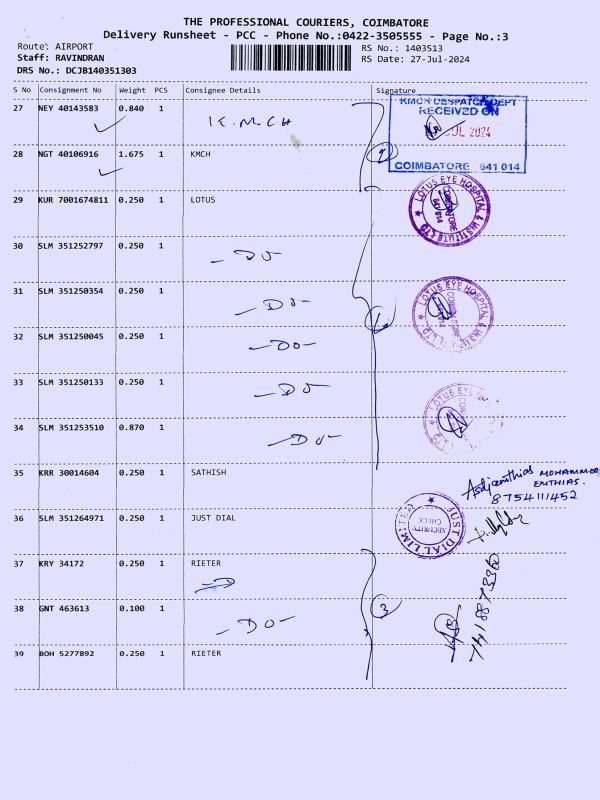 THE PROFESSIONAL COURIERS, COIMBATORE
Delivery Runsheet - PCC - Phone No.:0422-3505555 - Page No.:3
Route: AIRPORT
RS No.: 1403513
Staff: RAVINDRAN
RS Date: 27-Jul-2024
DRS No.: DCJB140351303
S No Consignment No Weight PCS Consignee Details Signature
27 NEY 40143583 0.840 1 K.M.C.H
KMCH DESPATCH DEPT
RECEIVED ON
JUL 2024
COIMBATORE 641 014
28 NGT 40106916 1.675 1 KMCH
29 KUR 7001674811 0.250 1 LOTUS
LOTUS EYE HOSPITAL & INSTITUTE LTD
COIMBATORE
641 014
30 SLM 351252797 0.250 1 - DO -
31 SLM 351250354 0.250 1 - DO -
LOTUS EYE HOSPITAL & INSTITUTE LTD
32 SLM 351250045 0.250 1 - DO -
33 SLM 351250133 0.250 1 - DO -
34 SLM 351253510 0.870 1 - DO -
LOTUS EYE
35 KRR 30014604 0.250 1 SATHISH
MOHAMMOD
EMTHIAS.
8754111452
36 SLM 351264971 0.250 1 JUST DIAL
JUST DIAL LIMITED
SECURITY
CHECK
37 KRY 34172 0.250 1 RIETER
38 GNT 463613 0.100 1 - DO -
3
39 BOH 5277892 0.250 1 RIETER